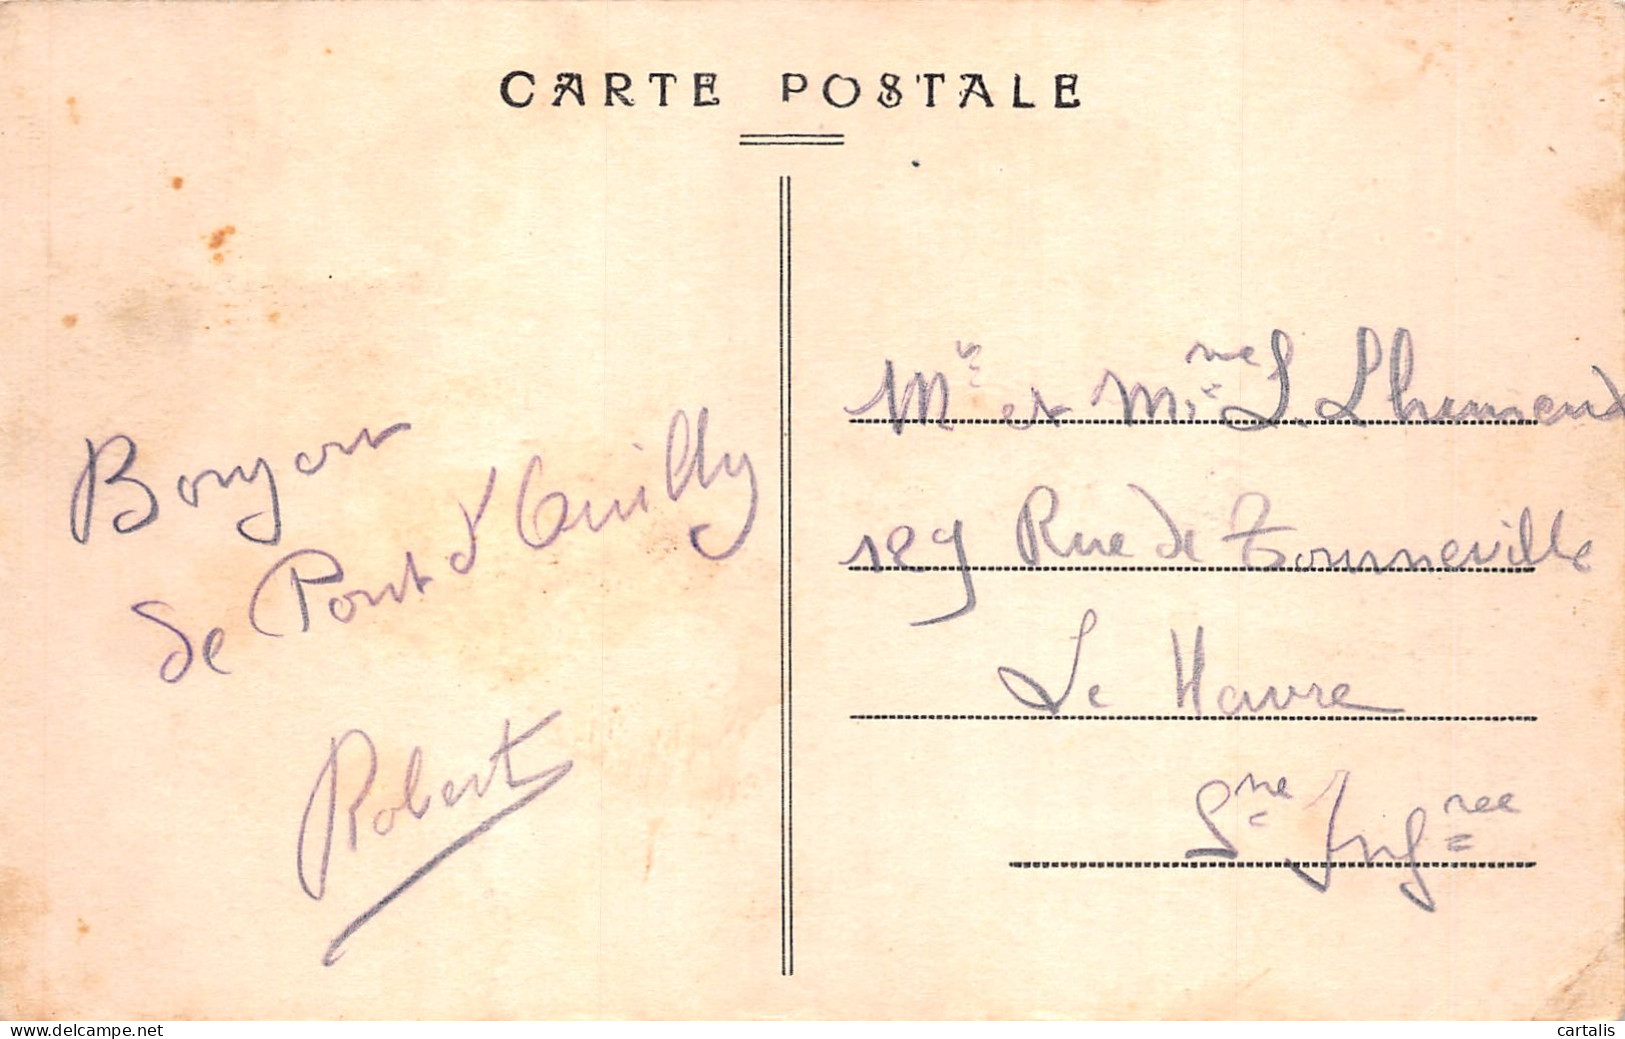 CARTE POSTALE
Bonjour
de Pont d'Ouilly
Robert
Mr et Mme L. Lhemend
129 Rue de Tourneville
Le Havre
Sne Infree
cartalis